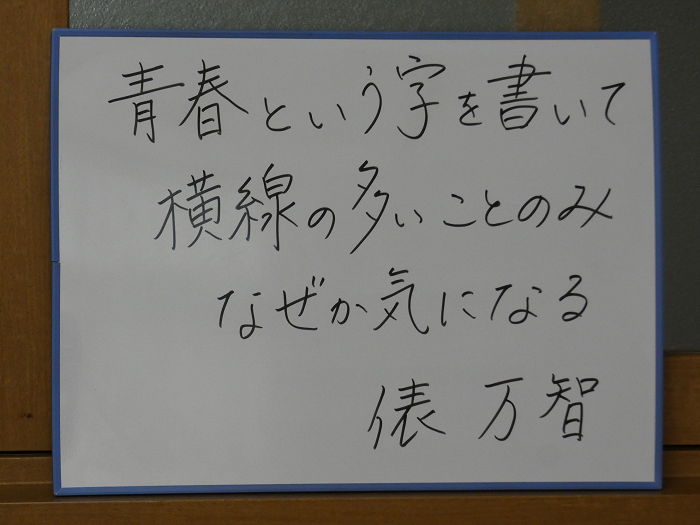 青春という字を書いて
横線の多いことのみ
なぜか気になる
俵 万智